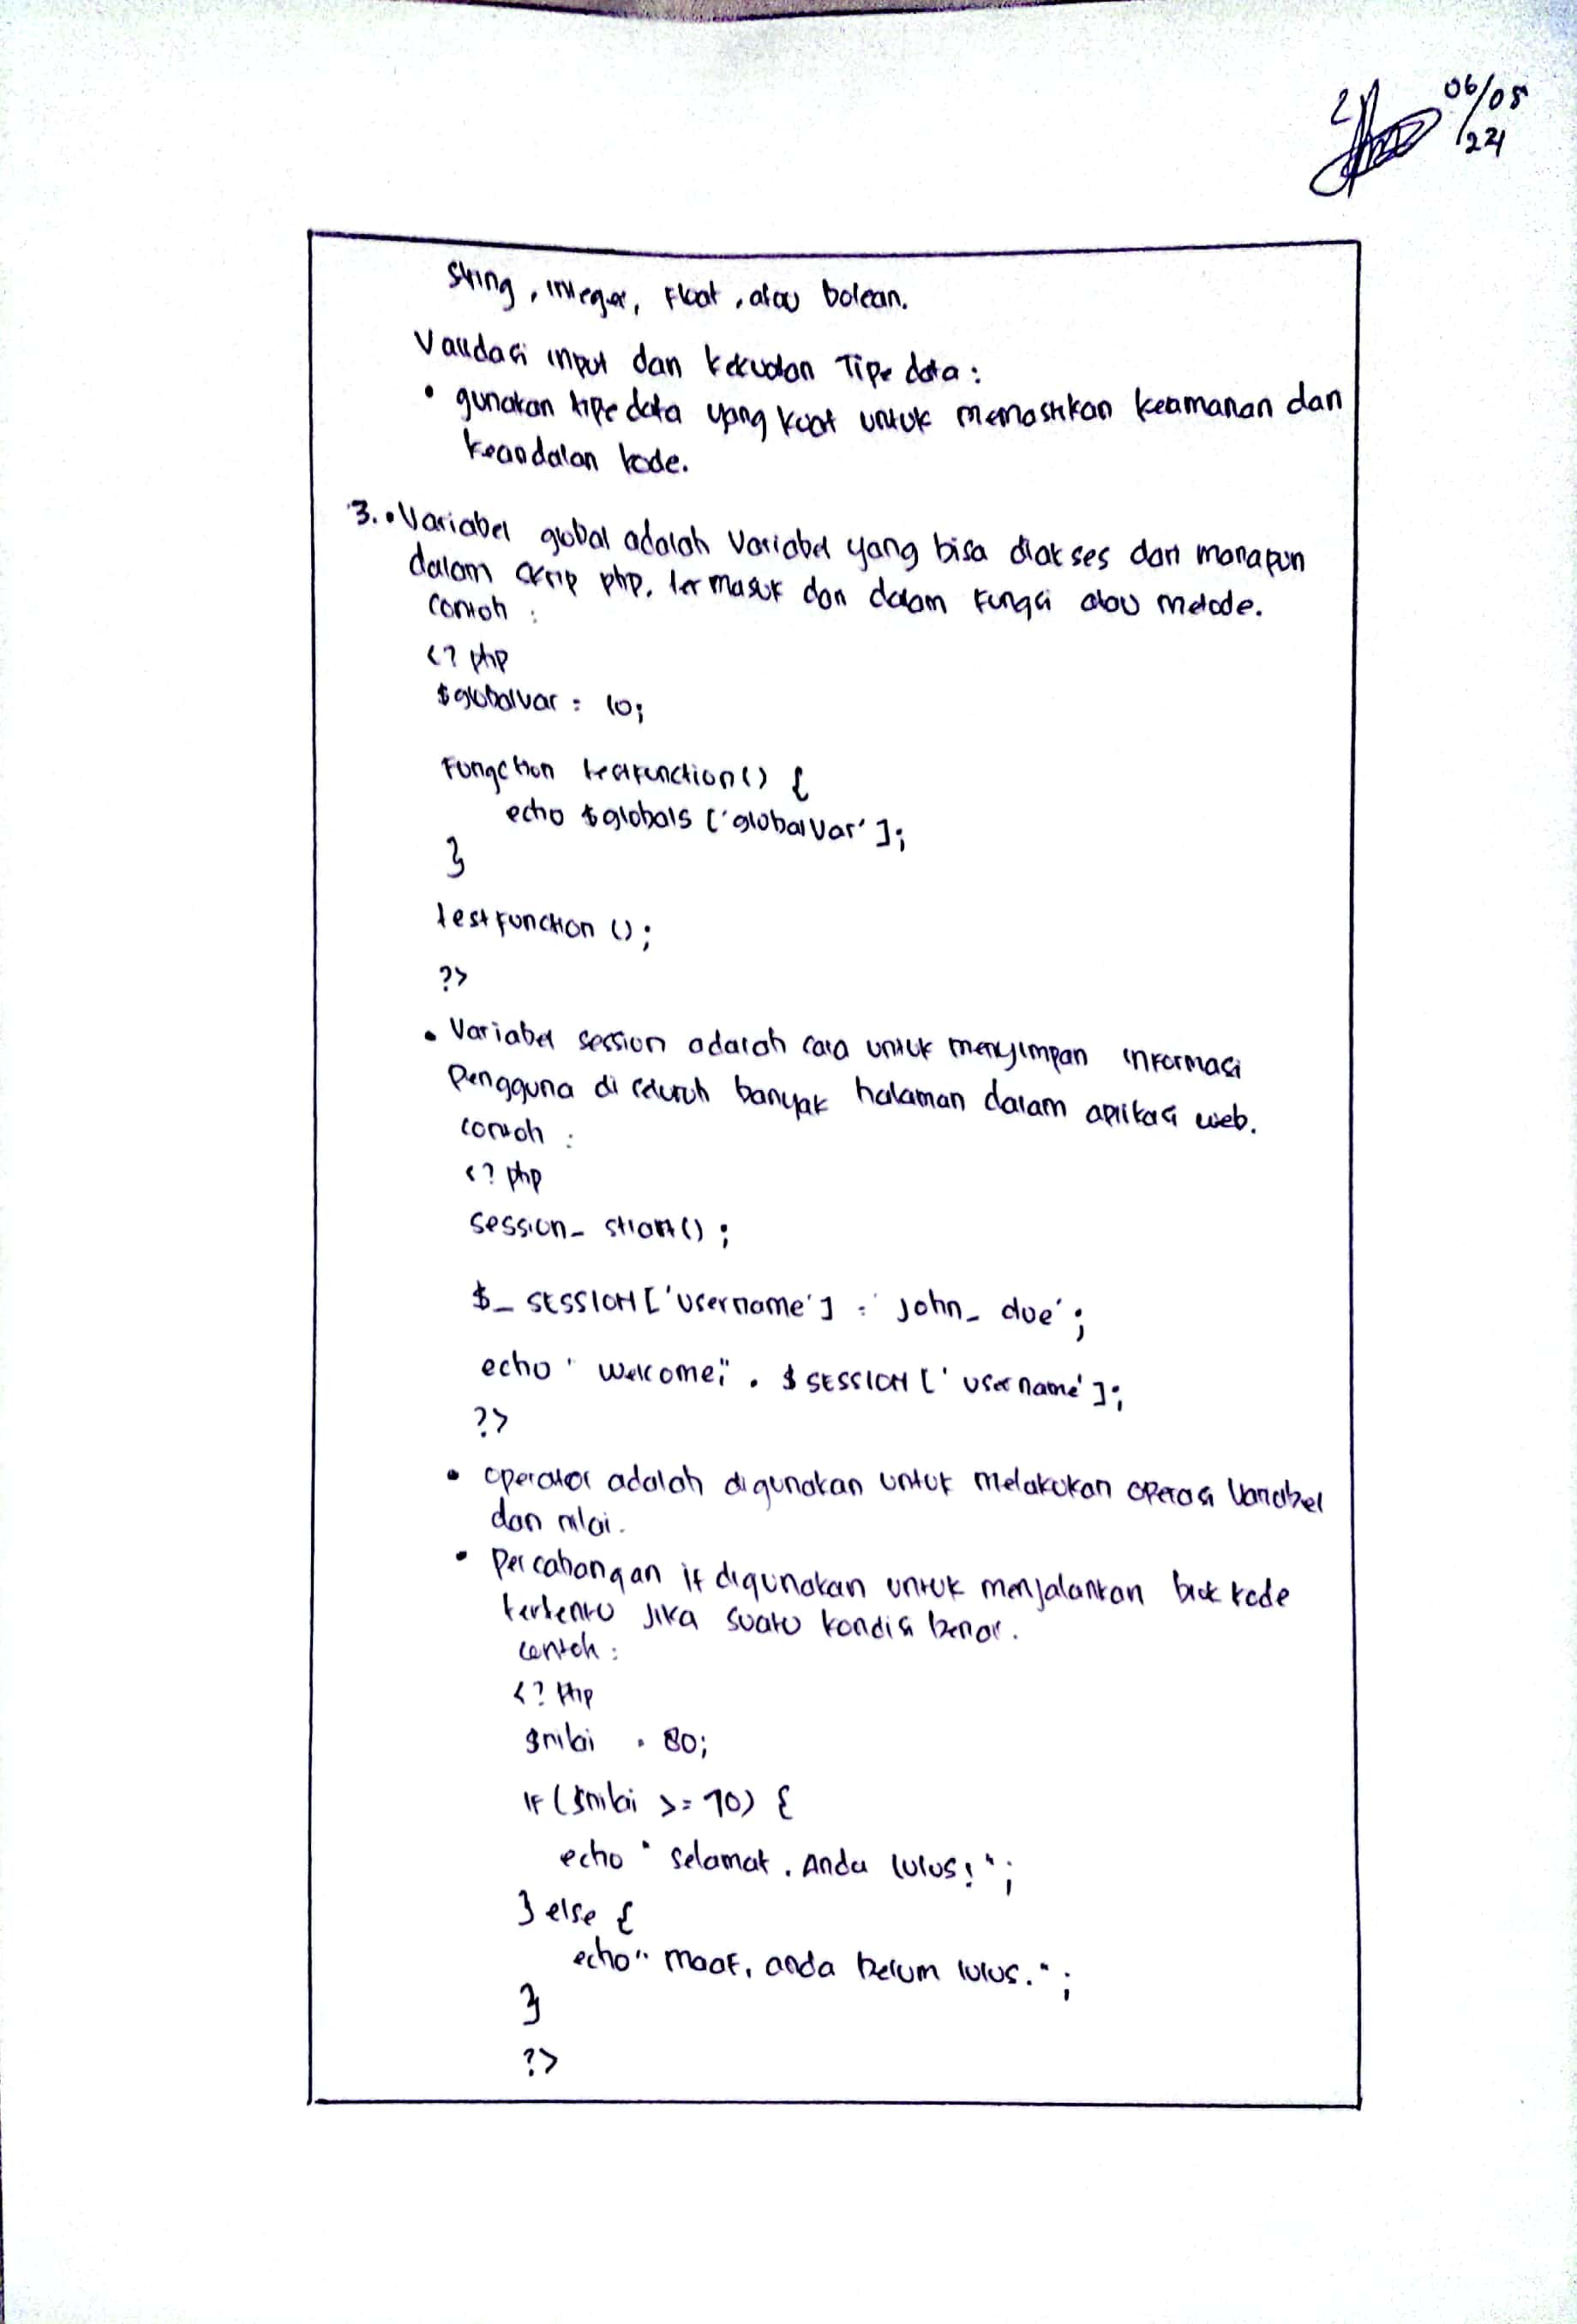 06/05
/24
String, integer, float, atau bolean.
Validasi input dan kekuatan Tipe data:
• gunakan tipe data yang kuat untuk memastikan keamanan dan
keandalan kode.
3. • Variabel global adalah Variabel yang bisa diakses dari manapun
dalam skrip php, termasuk dari dalam fungsi atau metode.
contoh :
<? php
$globalvar = 10;
Fungction testfunction() {
echo $globals ['globalVar'];
}
testfunction ();
?>
• Variabel session adalah cara untuk menyimpan informasi
pengguna di seluruh banyak halaman dalam aplikasi web.
contoh :
<? php
session_ start() ;
$_ SESSION ['username'] = 'john_ doe' ;
echo " welcome;" . $ SESSION [' username'];
?>
• operator adalah digunakan untuk melakukan operasi Variabel
dan nilai.
• Percabangan if digunakan untuk menjalankan blok kode
tertentu jika suatu kondisi benar.
contoh :
<? php
$nilai = 80;
if ($nilai >= 70) {
echo " selamat, Anda lulus! " ;
} else {
echo " maaf, anda belum lulus. " ;
}
?>